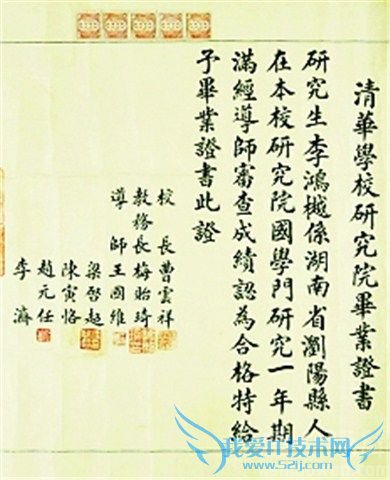 清華學校研究院畢業證書
研究生李鴻樾係湖南省瀏陽縣人
在本校研究院國學門研究一年期
滿經導師審查成績認為合格特給
予畢業證書此證
校 長 曹雲祥
教務長 梅貽琦
導 師 王國維
梁啓超
陳寅恪
趙元任
李濟
我爱IT技术网
www.52ij.com